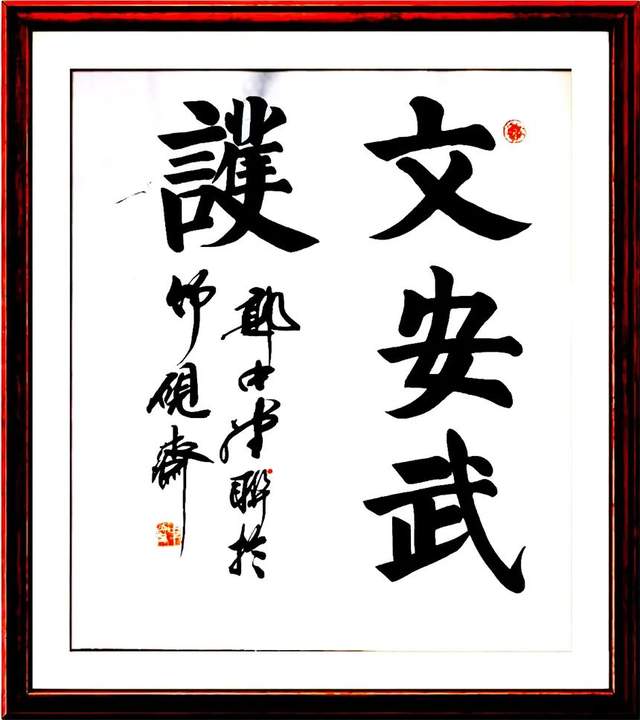 文安武
護
中聯於
硯齋